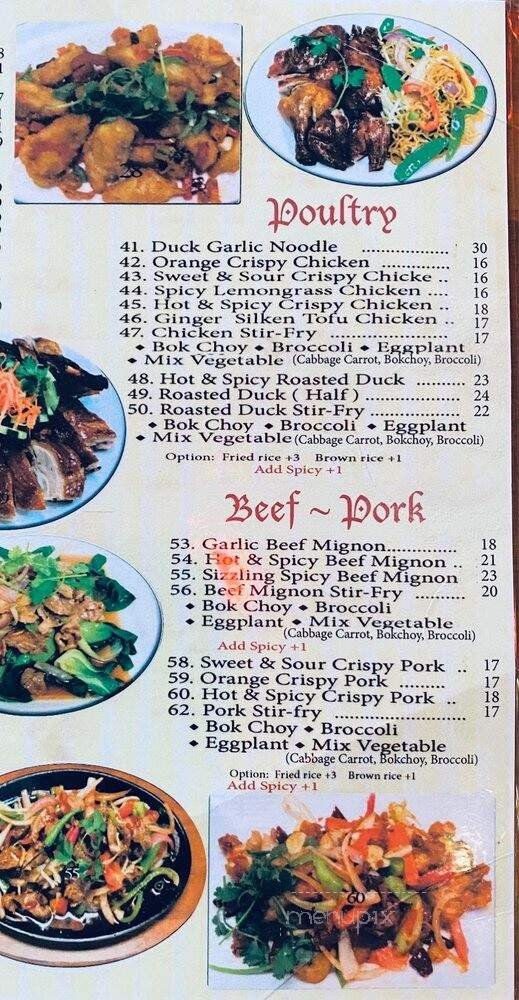 28
Poultry
41. Duck Garlic Noodle .................. 30
42. Orange Crispy Chicken .............. 16
43. Sweet & Sour Crispy Chicke .. 16
44. Spicy Lemongrass Chicken .... 16
45. Hot & Spicy Crispy Chicken .. 18
46. Ginger Silken Tofu Chicken .. 17
47. Chicken Stir-Fry ..................... 17
◆ Bok Choy ◆ Broccoli ◆ Eggplant
◆ Mix Vegetable (Cabbage Carrot, Bokchoy, Broccoli)
48. Hot & Spicy Roasted Duck .......... 23
49. Roasted Duck ( Half ) .................. 24
50. Roasted Duck Stir-Fry ................. 22
◆ Bok Choy ◆ Broccoli ◆ Eggplant
◆ Mix Vegetable (Cabbage Carrot, Bokchoy, Broccoli)
Option: Fried rice +3 Brown rice +1
Add Spicy +1
Beef ~ Pork
53. Garlic Beef Mignon............. 18
54. Hot & Spicy Beef Mignon .. 21
55. Sizzling Spicy Beef Mignon 23
56. Beef Mignon Stir-Fry ......... 20
◆ Bok Choy ◆ Broccoli
◆ Eggplant ◆ Mix Vegetable
(Cabbage Carrot, Bokchoy, Broccoli)
Add Spicy +1
58. Sweet & Sour Crispy Pork .. 17
59. Orange Crispy Pork ......... 17
60. Hot & Spicy Crispy Pork .. 18
62. Pork Stir-fry ..................... 17
◆ Bok Choy ◆ Broccoli
◆ Eggplant ◆ Mix Vegetable
(Cabbage Carrot, Bokchoy, Broccoli)
Option: Fried rice +3 Brown rice +1
Add Spicy +1
55
60
menupix